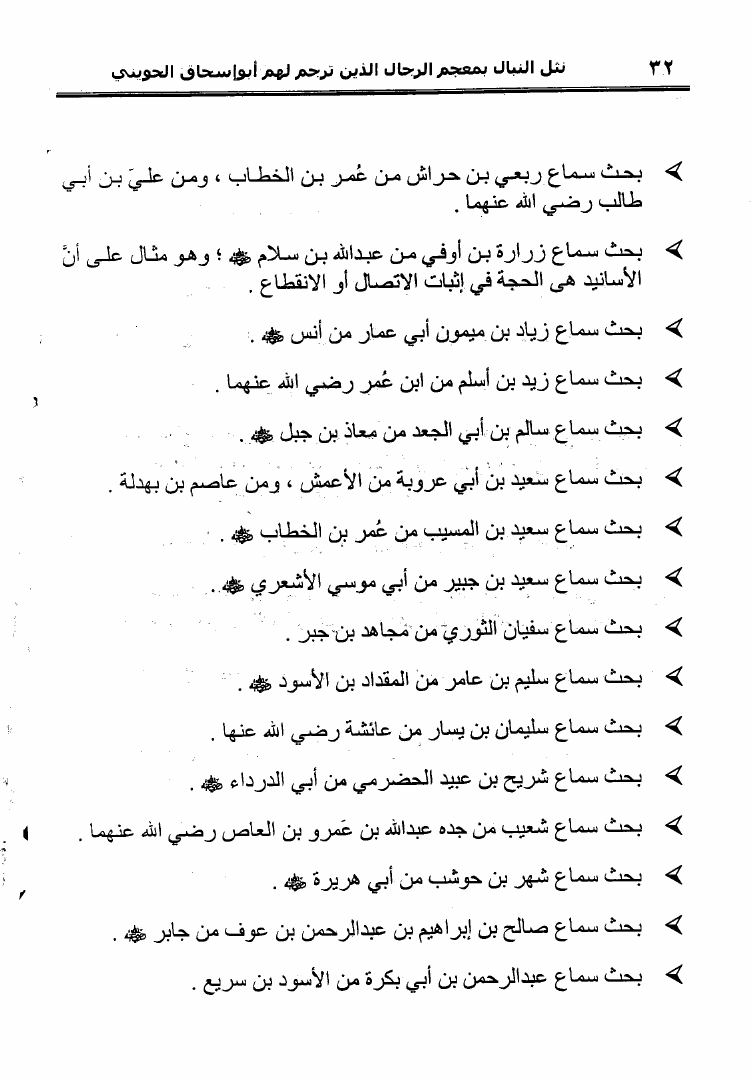 ٣٢ نثل النبال بمعجم الرجال الذين ترجم لهم أبوإسحاق الحويني
➢ بحث سماع ربعي بن حراش من عُمر بن الخطاب ، ومن عليّ بن أبي
طالب رضي الله عنهما .
➢ بحث سماع زرارة بن أوفي من عبدالله بن سلام ﷺ ؛ وهو مثال على أنَّ
الأسانيد هى الحجة في إثبات الاتصال أو الانقطاع .
➢ بحث سماع زياد بن ميمون أبي عمار من أنس ﷺ .
➢ بحث سماع زيد بن أسلم من ابن عُمر رضي الله عنهما .
➢ بحث سماع سالم بن أبي الجعد من معاذ بن جبل ﷺ .
➢ بحث سماع سعيد بن أبي عروبة من الأعمش ، ومن عاصم بن بهدلة .
➢ بحث سماع سعيد بن المسيب من عُمر بن الخطاب ﷺ .
➢ بحث سماع سعيد بن جبير من أبي موسي الأشعري ﷺ .
➢ بحث سماع سفيان الثوري من مجاهد بن جبر .
➢ بحث سماع سليم بن عامر من المقداد بن الأسود ﷺ .
➢ بحث سماع سليمان بن يسار من عائشة رضي الله عنها .
➢ بحث سماع شريح بن عبيد الحضرمي من أبي الدرداء ﷺ .
➢ بحث سماع شعيب من جده عبدالله بن عَمرو بن العاص رضي الله عنهما .
➢ بحث سماع شهر بن حوشب من أبي هريرة ﷺ .
➢ بحث سماع صالح بن إبراهيم بن عبدالرحمن بن عوف من جابر ﷺ .
➢ بحث سماع عبدالرحمن بن أبي بكرة من الأسود بن سريع .